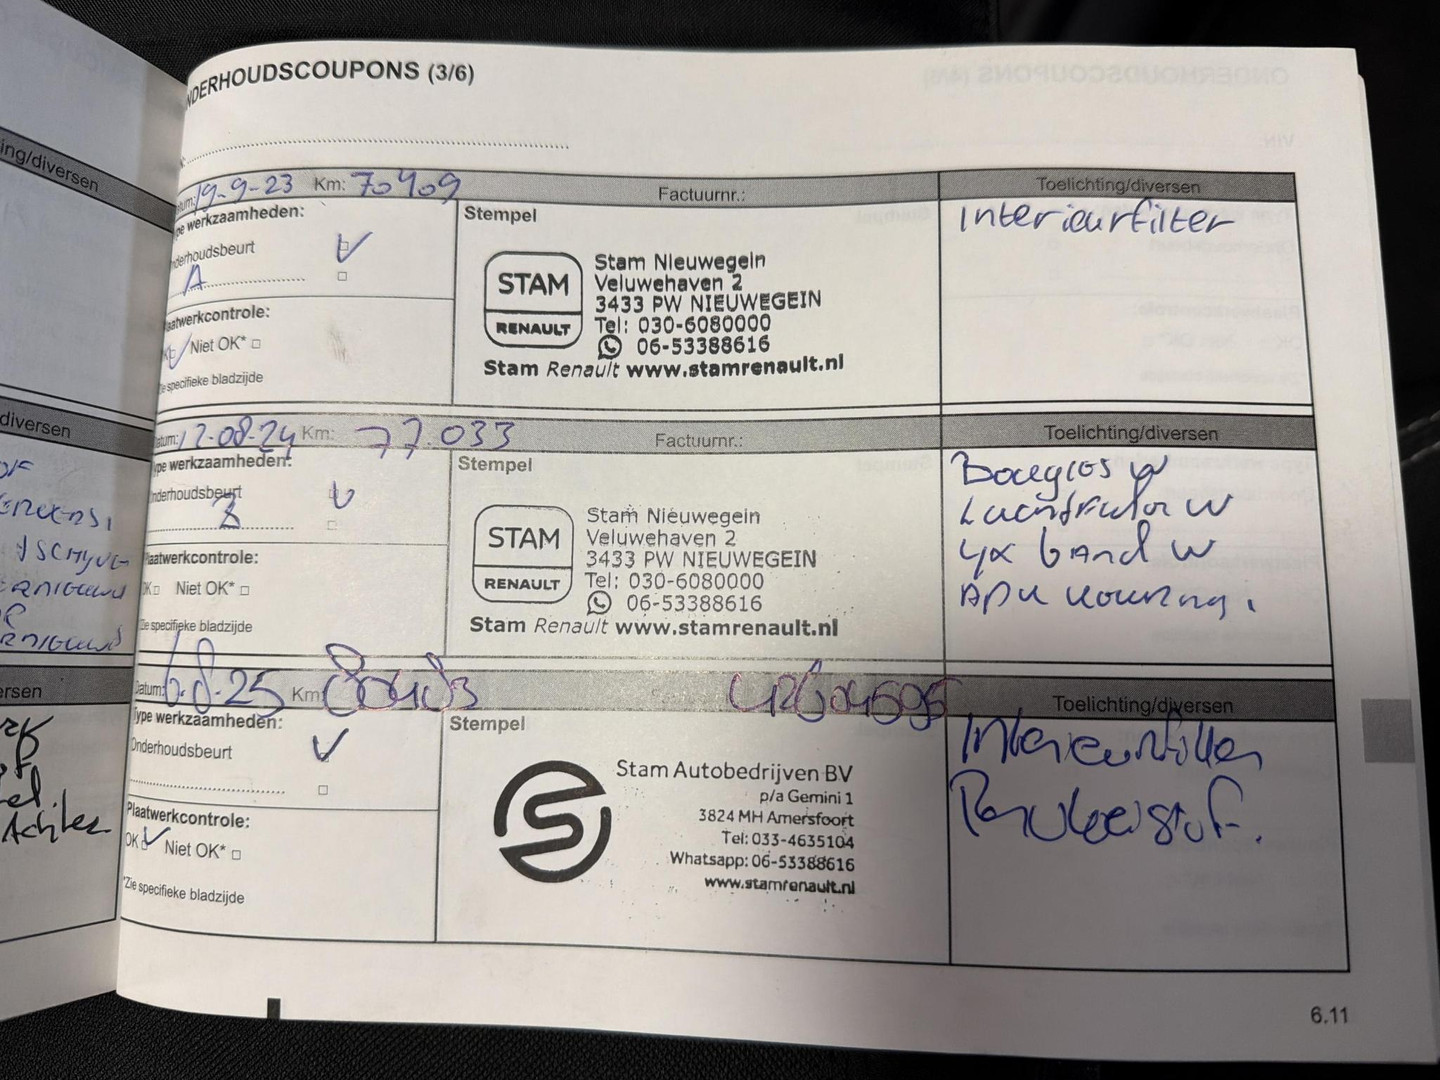 ing/diversen
diversen
ersen
NDERHOUDSCOUPONS (3/6)
19-9-23 Km: 70409 Factuurnr.: Toelichting/diversen
ype werkzaamheden:
nderhoudsbeurt
A
Plaatwerkcontrole:
Niet OK*
Zie specifieke bladzijde
Stempel
STAM
RENAULT
Stam Nieuwegein
Veluwehaven 2
3433 PW NIEUWEGEIN
Tel: 030-6080000
06-53388616
Stam Renault www.stamrenault.nl
Interieurfilter
Datum: 12-08-24 Km: 77.033 Factuurnr.: Toelichting/diversen
Type werkzaamheden:
Onderhoudsbeurt
Plaatwerkcontrole:
OK Niet OK*
Zie specifieke bladzijde
Stempel
STAM
RENAULT
Stam Nieuwegein
Veluwehaven 2
3433 PW NIEUWEGEIN
Tel: 030-6080000
06-53388616
Stam Renault www.stamrenault.nl
Bougies W
Luchtfilter W
4x band W
APK keuring.
Datum: 6-8-25 Km: 80483 Toelichting/diversen
Type werkzaamheden:
Onderhoudsbeurt
Plaatwerkcontrole:
OK Niet OK*
*Zie specifieke bladzijde
Stempel
S
Stam Autobedrijven BV
p/a Gemini 1
3824 MH Amersfoort
Tel: 033-4635104
Whatsapp: 06-53388616
www.stamrenault.nl
Interieurfilter
6.11